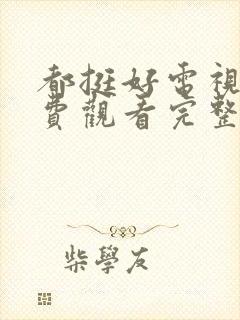 都挺好電視
費觀看完整
柴學友